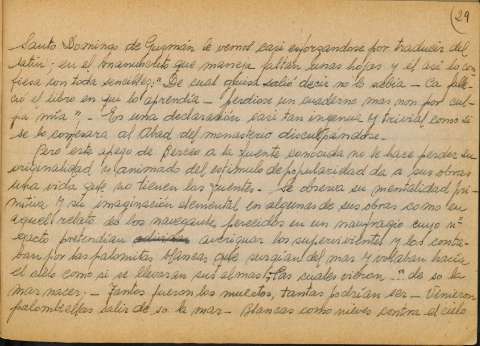 29
Santo Domingo de Guzmán le vemos casi esforzandose por traducir del
latín; en el manuscrito que maneja faltan unas hojas y el asi lo con
fiesa con toda sencillez: "De cual guisa salió decir no lo sabia - Ca falle
ció el libro en que lo aprendia - Perdiose un cuaderno mas non por cul
pa mia". - Es una declaración casi tan ingenua y trivial como si
se lo confesara al Abad del monasterio disculpandose.-
Pero este apego de Berceo a la fuente conocida no le hace perder su
originalidad y animado del estimulo de popularidad da a sus obras
una vida que no tienen las fuentes.- Se observa su mentalidad pri-
mitiva y su imaginación elemental en algunas de sus obras como en
aquel relato de los navegantes perecidos en un naufragio cuyo nº
exacto pretendian averiguar los supervivientes y los conta-
ban por las palomitas blancas que surgian del mar y volaban hacia
el cielo como si se llevaran sus almas, las cuales vieron "de so la
mar nacer. - Tantos fueron los muertos, tantas podrian ser - Vinieron
palombiellas salir de so la mar - Blancas como nieves contra el cielo